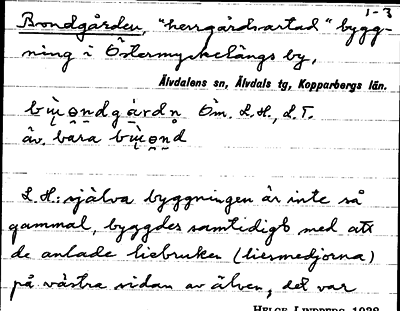 1-3
Brondgården, "herrgårdsartad" bygg-
ning i Östermyckelängs by,
Älvdalens sn, Älvdals tg, Kopparbergs län.
Öm. L.H., L.T.
äv. bara
L.H.: själva byggningen är inte så
gammal, byggdes samtidigt med att
de anlade liebruken (liesmedjorna)
på västra sidan av älven, det var
HELGE LINDBERG 1938